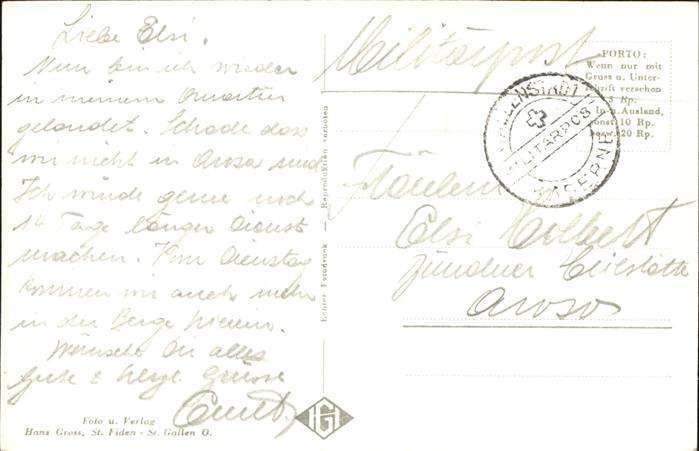 Liebe Elsi.
Nun bin ich wieder
in meinem Quartier
gelandet. Schade dass
wir nicht in Arosa sind
Ich würde gerne noch
14 Tage länger Dienst
machen. Vom Dienstag
kommen wir auch mehr
in die Berge hinein.
Wünsche Dir alles
Gute & herzl. Grüsse
Foto u. Verlag
Hans Gross, St. Fiden - St. Gallen O.
Echter Fotodruck — Reproduktion verboten
HG
Militärpost
PORTO:
Wenn nur mit
Gruss u. Unter-
schrift versehen
5 Rp.
In- u. Ausland,
sonst 10 Rp.
bezw. 20 Rp.
WALLENSTADT
MILITÄRPOST
KASERNE
Fräulein
Elsi
Bündner Heilstätte
Arosa